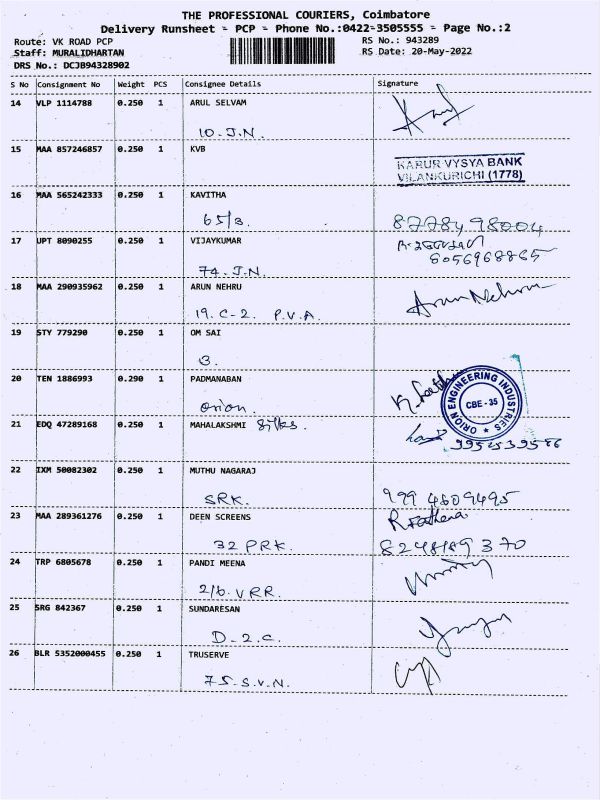 THE PROFESSIONAL COURIERS, Coimbatore
Delivery Runsheet - PCP - Phone No.:0422-3505555 - Page No.:2
Route: VK ROAD PCP
RS No.: 943289
Staff: MURALIDHARTAN
RS Date: 20-May-2022
DRS No.: DCJB94328902
S No Consignment No Weight PCS Consignee Details Signature
14 VLP 1114788 0.250 1 ARUL SELVAM
10. J.N.
15 MAA 857246857 0.250 1 KVB
KARUR VYSYA BANK
VILANKURICHI (1778)
16 MAA 565242333 0.250 1 KAVITHA
65/3. 8778498004
17 UPT 8090255 0.250 1 VIJAYKUMAR
6056968865
74. J.N.
18 MAA 290935962 0.250 1 ARUN NEHRU
19. C-2. P.V.A. Arun Nehru
19 STY 779290 0.250 1 OM SAI
3.
20 TEN 1886993 0.290 1 PADMANABAN
Orion.
ORION ENGINEERING INDUSTRIES
CBE - 35
21 EDQ 47289168 0.250 1 MAHALAKSHMI Silks.
9952539586
22 IXM 50082302 0.250 1 MUTHU NAGARAJ
SRK. 999 4609495
23 MAA 289361276 0.250 1 DEEN SCREENS
32 PRK. 8248189370
24 TRP 6805678 0.250 1 PANDI MEENA
2/6. VRR.
25 SRG 842367 0.250 1 SUNDARESAN
D-2.C.
26 BLR 5352000455 0.250 1 TRUSERVE
75.S.V.N.